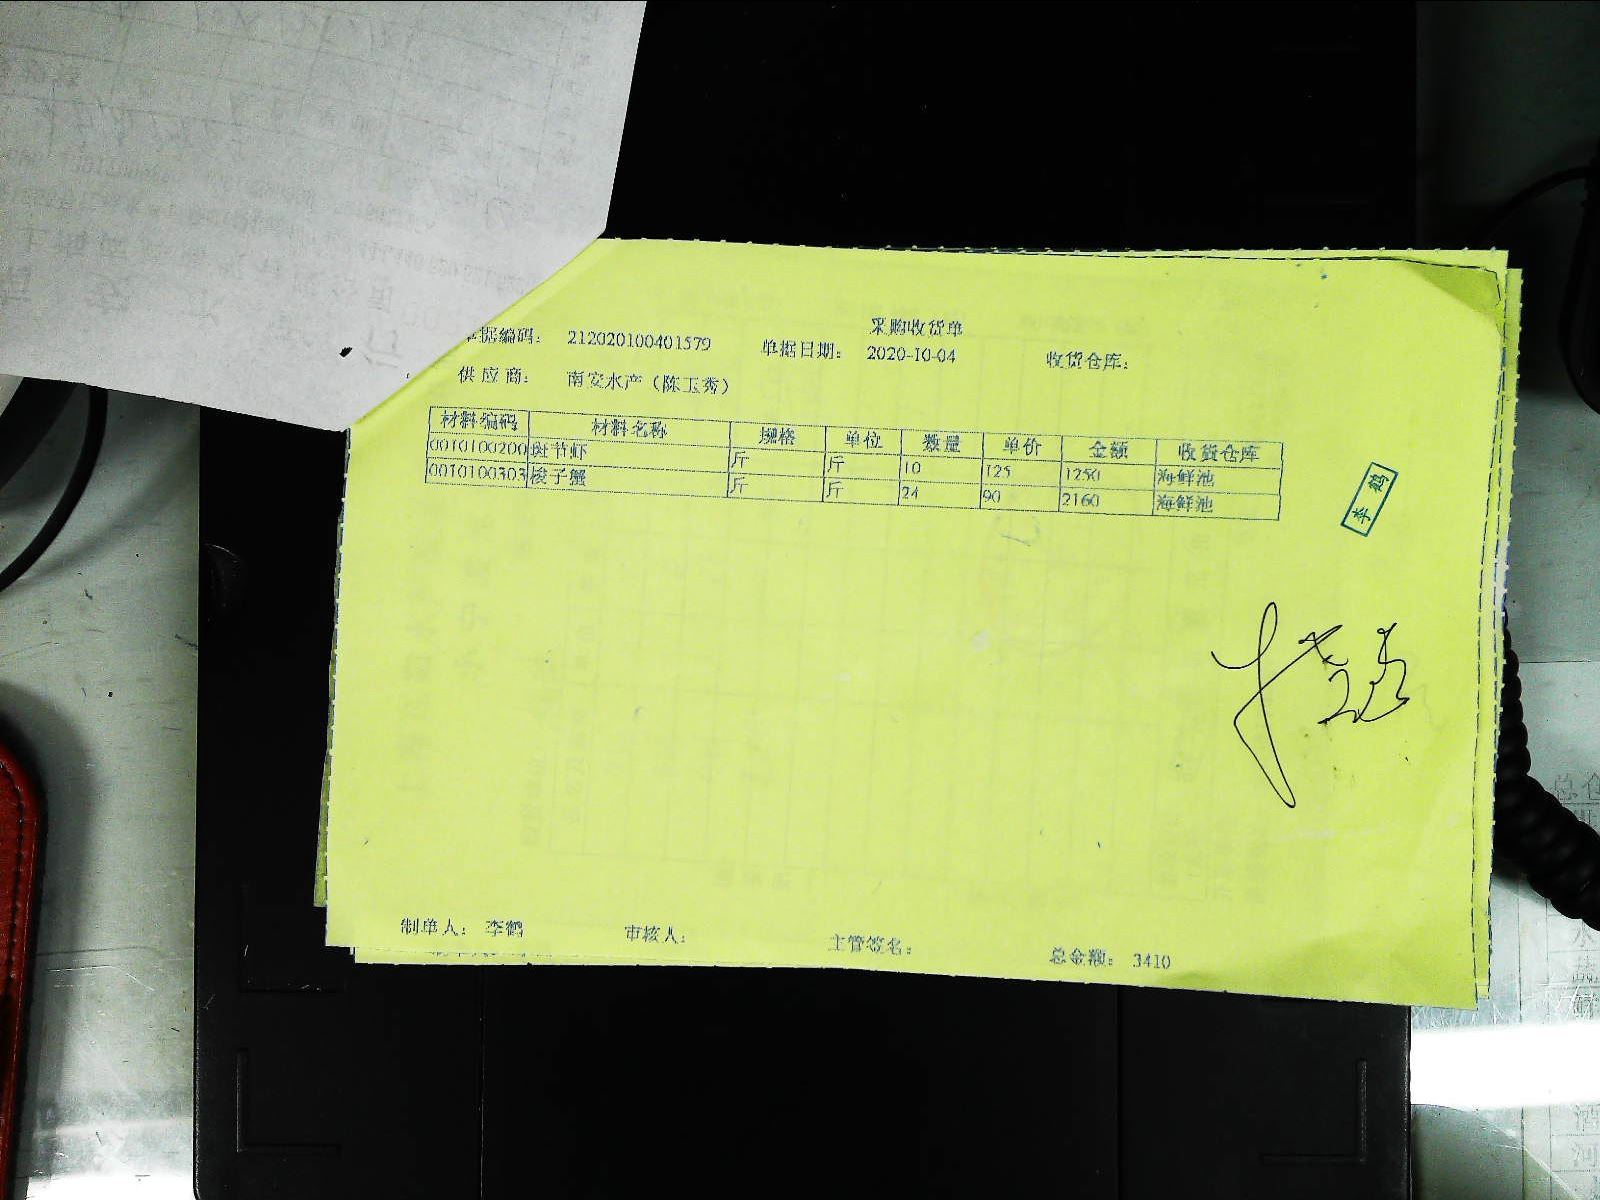 采购收货单
单据编码： 212020100401579 单据日期： 2020-10-04 收货仓库：
供应商： 南安水产（陈玉秀）
材料编码 材料名称 规格 单位 数量 单价 金额 收货仓库
0010100200 斑节虾 斤 斤 10 125 1250 海鲜池
0010100303 梭子蟹 斤 斤 24 90 2160 海鲜池
李鹤
制单人： 李鹤 审核人： 主管签名： 总金额： 3410